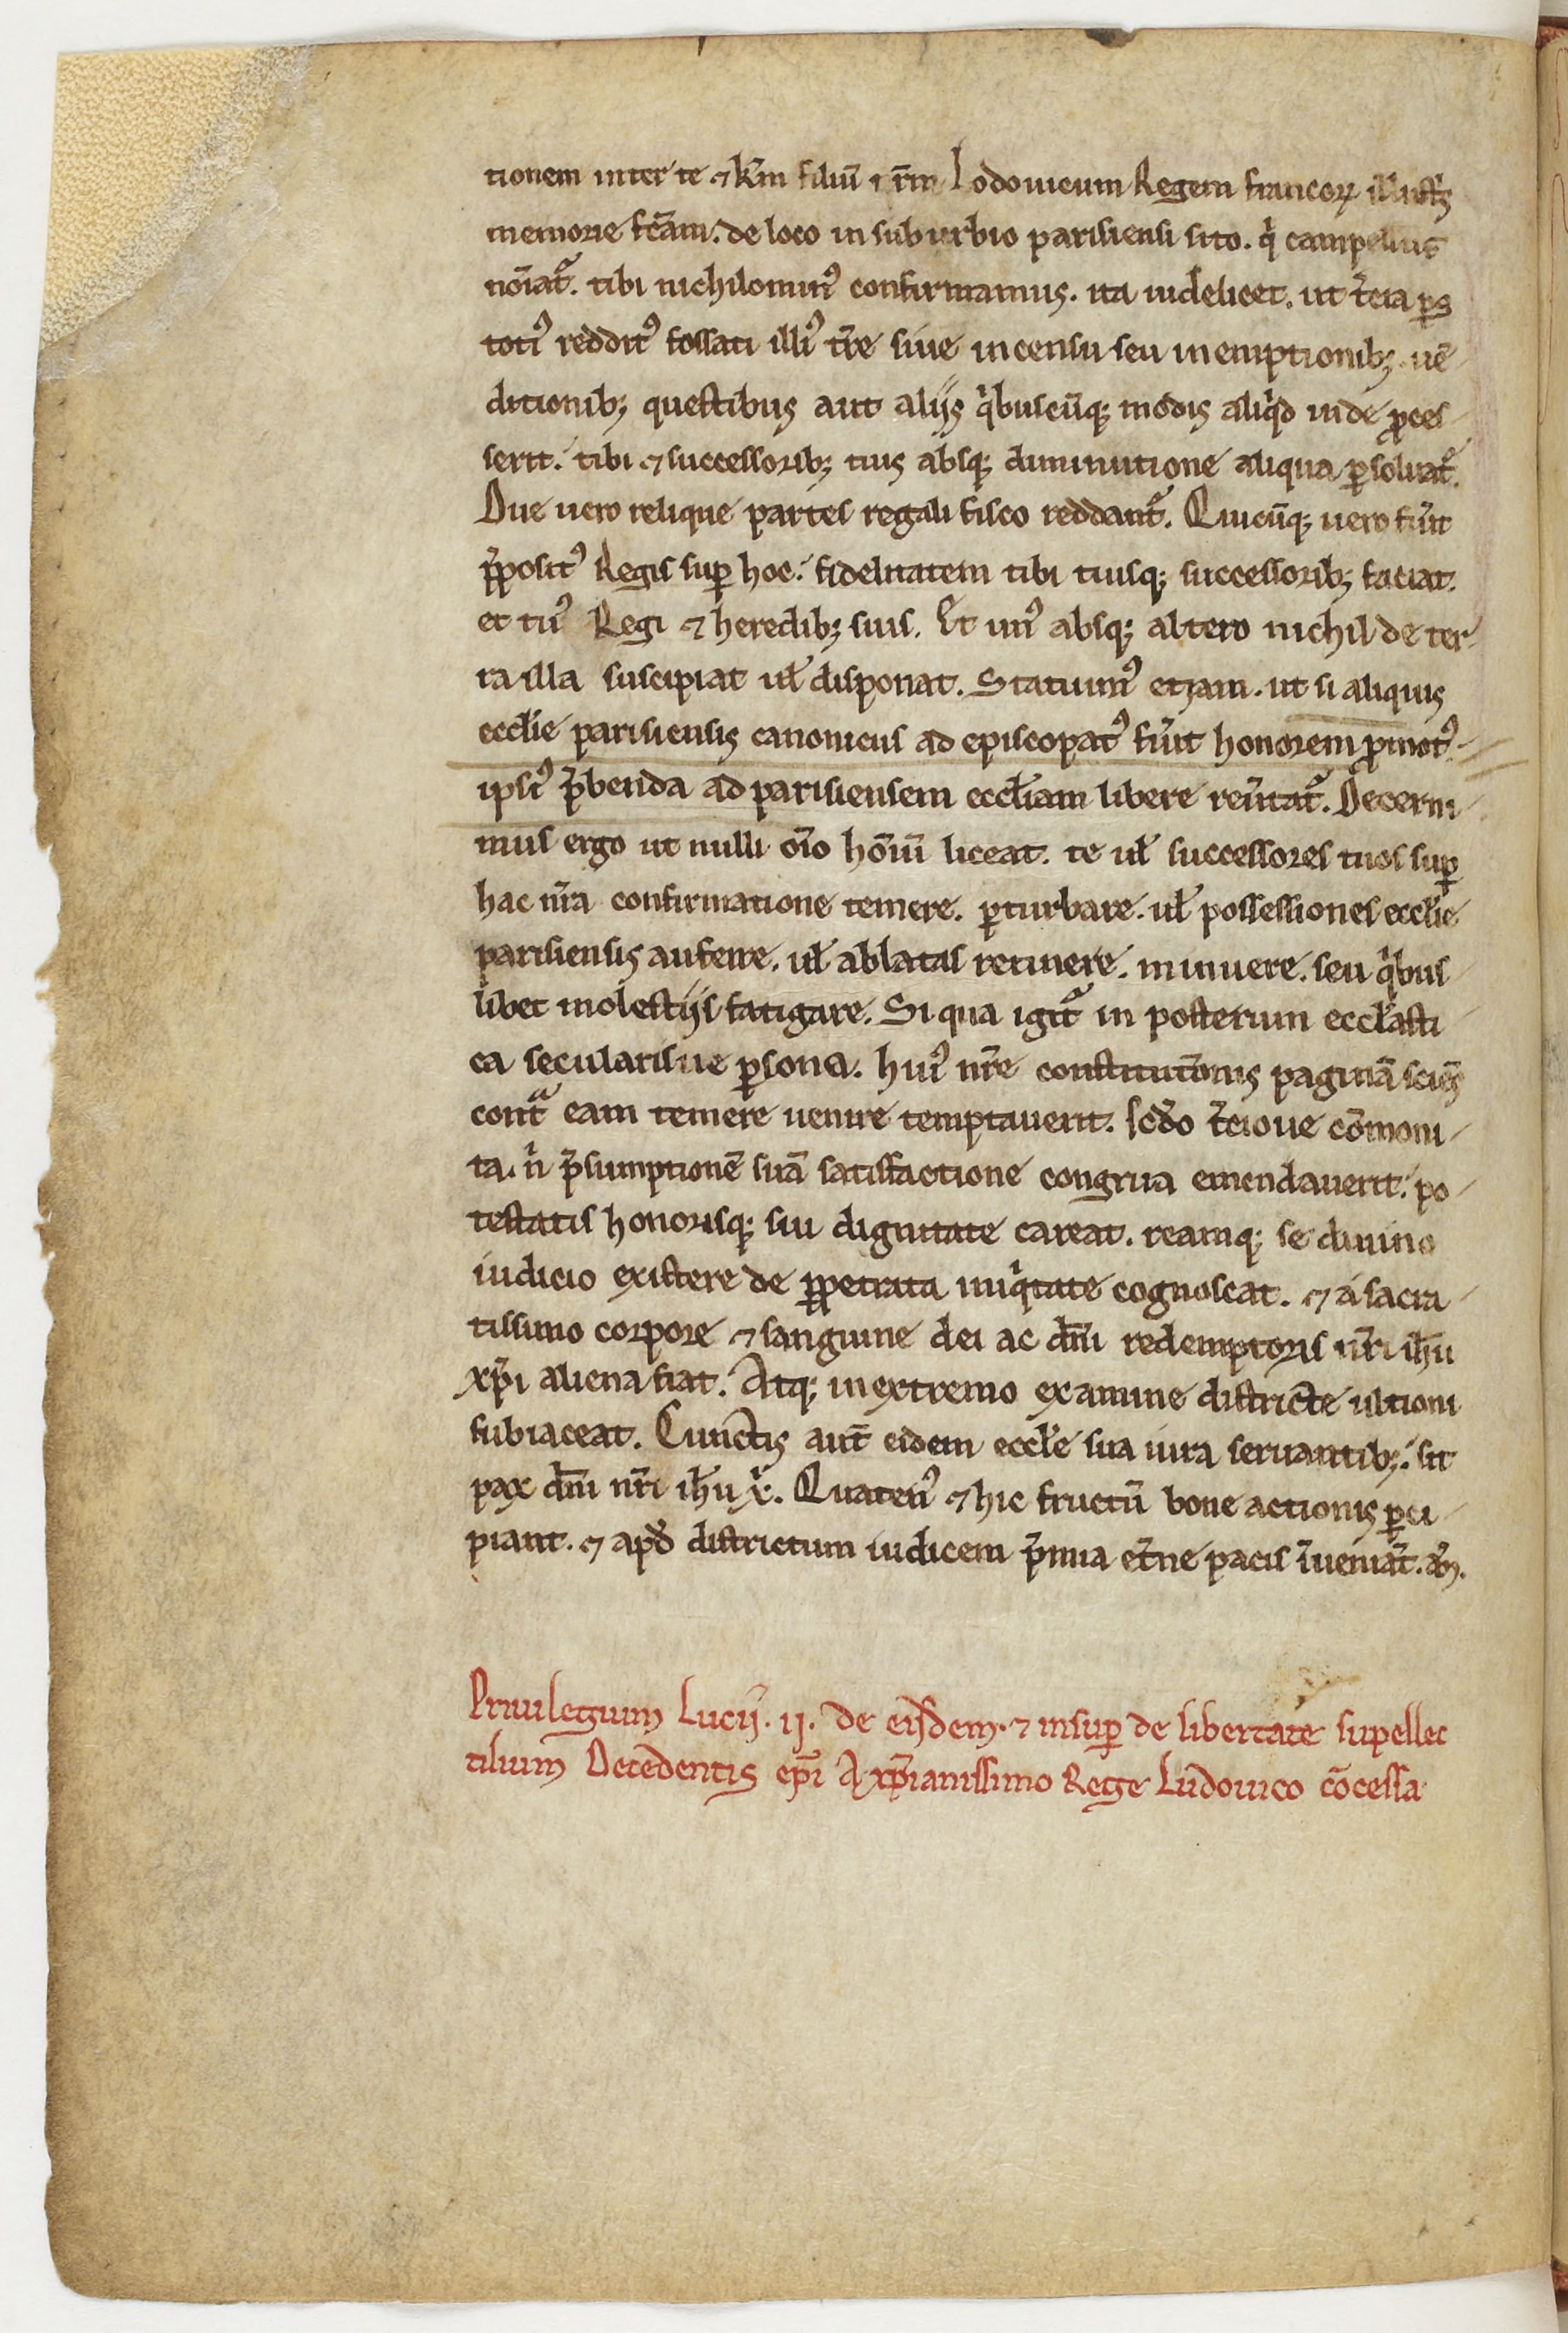 tionem inter te ⁊ km̄ filiū ⁊ nr̄m Lodouicum Regem francoꝝ illustris
memorie fc̄am. de loco in suburbio parisiensi sito. qͥ campellus
noīatᷣ. tibi nichilominꝰ confirmamus. ita uidelicet. ut t̄cia pars
totiꝰ redditꝰ fossati illiꝰ tr̄e siue in censu seu in emptionibꝫ. uē-
ditionibꝫ questibus aut aliis qͥbuscūqꝫ modis aliqͥd inde ꝓces-
serit. tibi ⁊ successoribꝫ tuis absqꝫ diminutione aliqua ꝑsoluatᷣ.
Due uero relique partes regali fisco reddantᷣ. Quicūqꝫ uero fuīt
p̄positꝰ Regis suꝑ hoc. fidelitatem tibi tuisqꝫ successoribꝫ faciat.
et tuꝰ Regi ⁊ heredibꝫ suis. Et unꝰ absqꝫ altero nichil de ter-
ra illa suscipiat ul̄ disponat. Statuimꝰ etiam. ut si aliquis
eccl̄ie parisiensis canonicus ad episcopatꝰ fuīt honorem ꝓmotꝰ.
ipsiꝰ p̄benda ad parisiensem eccl̄iam libere reūtatᷣ. Decerni-
mus ergo ut nulli oīo hoīū liceat. te ul̄ successores tuos suꝑ
hac nr̄a confirmatione temere. ꝑturbare. ul̄ possessiones eccl̄ie
parisiensis auferre. ul̄ ablatas retinere. minuere. seu qͥbus-
libet molestiis fatigare. Si qua igitᷣ in posterum eccl̄asti-
ca secularisue ꝑsona. huiꝰ nr̄e constitutōnis paginā sciēs
contᷓ eam temere uenire temptauerit. scd̄o t̄cioue cōmoni-
ta. nͥ p̄sumptionē suā satisfactione congrua emendauerit. po-
testatis honorisqꝫ sui dignitate careat. reamqꝫ se diuino
iudicio existere de ꝑpetrata iniqͥtate cognoscat. ⁊ a sacra-
tissimo corpore ⁊ sanguine dei ac dn̄i redemptoris nr̄i ih̄u
xp̄i aliena fiat. Atqꝫ in extremo examine districte ultioni
subiaceat. Cunctis aut̄ eidem eccl̄ie sua iura seruantibꝫ. sit
pax dn̄i nr̄i ih̄u xͥ. Quatenꝰ ⁊ hic fructū bone actionis ꝑci-
piant. ⁊ apd̄ districtum iudicem p̄mia et̄ne pacis īueniāt. am̄.
Priuilegium Lucii. ii. de eisdem. ⁊ insuꝑ de libertate supellec
tilium Decedentis ep̄i A xp̄ianissimo Rege Ludouico cōcessa